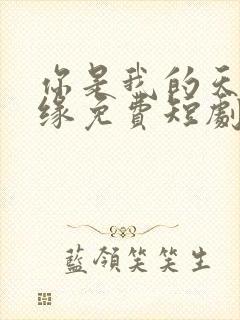 你是我的天
缘免費短劇
藍領笑笑生